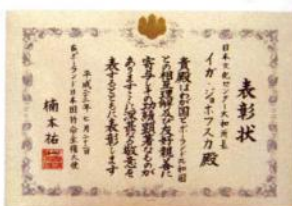 表彰状
日本文化センター大和所長
イガ・ジョホフスカ殿
貴殿はわが国とポーランド共和国
との相互理解及び友好親善に
寄与しその功績顕著なものが
ありますので深甚なる敬意を
表するとともに表彰します
平成二三年七月十二日
在ポーランド日本国特命全権大使
楠本祐一